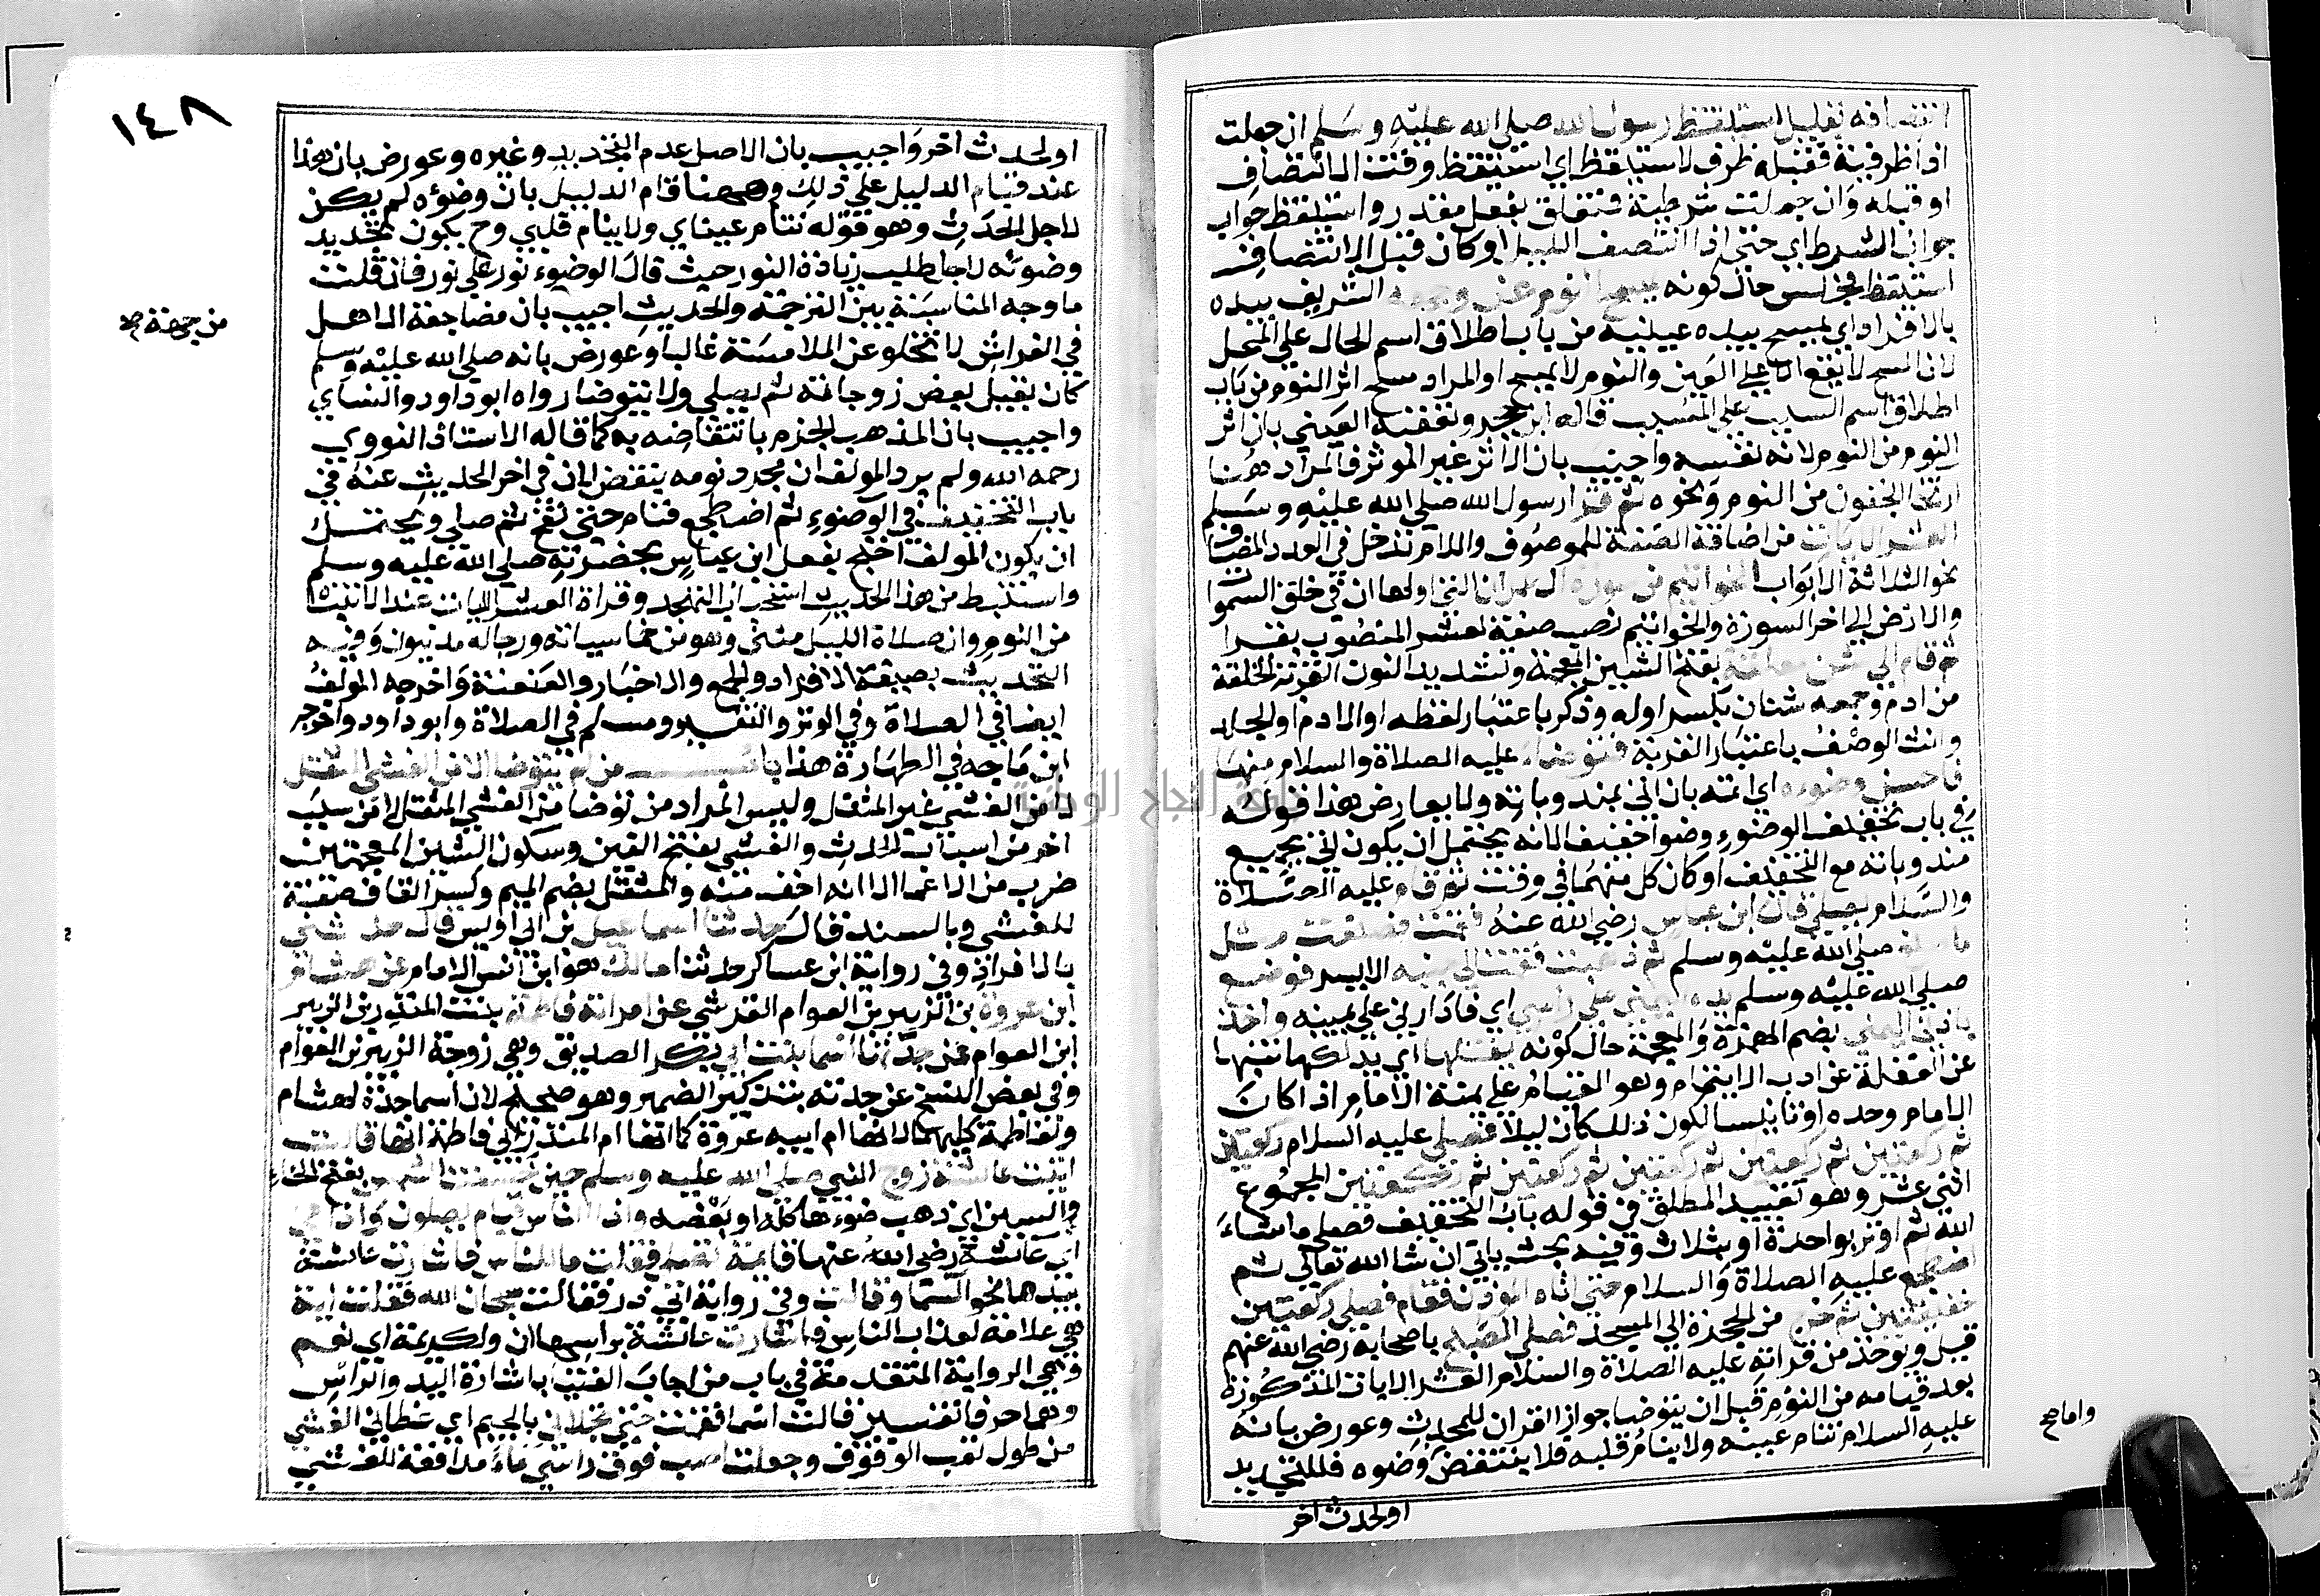 انتصافه بقليل استيقظ رسول الله صلى الله عليه وسلم ان جعلت
اذا ظرفية فقبله ظرف لاستيقظ اي استيقظ وقت الانتصاف
او قبله وان جعلت شرطية فتعلق بفعل مقدر واستيقظ جواب
جواب الشرط اي حتى اذا انتصف الليل او كان قبل الانتصاف
استيقظ فجلس حال كونه يمسح النوم عن وجهه الشريف بيده
بالافراد اي يمسح بيده عينيه من باب اطلاق اسم الحال علي المحل
لان المسح لا يقع الا علي العين والنوم لا يمسح او المراد مسح اثر النوم من باب
اطلاق اسم السبب علي المسبب قاله ابن حجر وتعقبه العيني بان اثر
النوم من النوم لانه نفسه واجيب بان الاثر غير الموثر فالمراد هنا
ارتخا الجفون من النوم ونحوه ثم قرا رسول الله صلي الله عليه وسلم
العشر الايات من اضافة الصفة للموصوف واللام تدخل في العدد المضاف
نحو الثلاثة الابواب الخواتيم من سورة ال عمران التي اولها ان في خلق السموات
والارض الي اخر السورة والخواتيم نصب صفة لعشر المنصوب بقرا
ثم قام الي شن معلقة بفتح الشين المعجمة وتشديد النون القربة الخلقة
من ادم وجمعه شنان بكسر اوله وذكر باعتبار لفظه او الادم او الجلد
وانث الوصف باعتبار القربة فتوضا عليه الصلاة والسلام منها
فاحسن وضوءه اي اتمه بان اتي بمندوباته ولا يعارض هذا قوله
في باب تخفيف الوضوء وضوا خفيفا لانه يحتمل ان يكون اتي بجميع
مندوباته مع التخفيف او كان كل منهما في وقت ثم قام عليه الصلاة
والسلام يصلي قال ابن عباس رضي الله عنه فقمت فصنعت مثل
ما صنع صلي الله عليه وسلم ثم ذهبت فقمت الي جنبه الايسر فوضع
صلي الله عليه وسلم يده اليمني علي راسي اي فادارني علي يمينه واخذ
باذني اليمني بضم الهمزة والمعجمة حال كونه يفتلها اي يدلكها تنبيها
عن الغفلة عن ادب الايتمام وهو القيام علي يمنة الامام اذا كان
الامام وحده او تانيسا لكون ذلك كان ليلا فصلي عليه السلام ركعتين
ثم ركعتين ثم ركعتين ثم ركعتين ثم ركعتين ثم ركعتين المجموع
اثني عشر وهو تقييد المطلق في قوله باب التخفيف فصلي ما شاء
الله ثم اوتر بواحدة او بثلاث وفيه بحث ياتي ان شا الله تعالي ثم
اضطجع عليه الصلاة والسلام حتي اتاه الموذن فقام فصلي ركعتين
خفيفتين ثم خرج من الحجرة الي المسجد فصلي الصبح باصحابه رضي الله عنهم
قيل ويوخذ من قراته عليه الصلاة والسلام العشر الايات المذكورة
بعد قيامه من النوم قبل ان يتوضا جواز القران للمحدث وعورض بانه
عليه السلام تنام عينه ولا ينام قلبه فلا ينتقض وضوه فللتجديد
واما صح
او لحدث اخر
١٤٨
او لحدث اخر واجيب بان الاصل عدم التجديد وغيره وعورض بان هذا
عند قيام الدليل علي ذلك وههنا قام الدليل بان وضوءه لم يكن
لاجل الحدث وهو قوله تنام عيناي ولا ينام قلبي وح يكون تجديد
وضوئه لاجل طلب زيادة النور حيث قال الوضوء نور علي نور فان قلت
ما وجه المناسبة بين الترجمة والحديث اجيب بان مضاجعة الاهل
من جهة صح
في الفراش لا تخلو عن الملامسة غالبا وعورض بانه صلي الله عليه وسلم
كان يقبل بعض زوجاته ثم يصلي ولا يتوضا رواه ابو داود والنساي
واجيب بان المذهب الجزم بانتقاضه به كما قاله الاستاذ النووي
رحمه الله ولم يرد المولف ان مجرد نومه ينقض لان في اخر الحديث عنه في
باب التخفيف في الوضوء ثم اضطجع فنام حتي نفخ ثم صلي ويحتمل
ان يكون المولف احتج بفعل ابن عباس بحضرته صلي الله عليه وسلم
واستنبط من هذا الحديث استحباب التهجد وقراة العشر الايات عند الانتباه
من النوم وان صلاة الليل مثني وهو من خماسياته ورجاله مدنيون وفيه
التحديث بصيغة الافراد والجمع والاخبار والعنعنة واخرجه المولف
ايضا في الصلاة وفي الوتر والتفسير ومسلم في الصلاة وابو داود واخرجه
ابن ماجه في الطهارة هذا باب من لم يتوضا الا من الغشي المثقل
لا من الغشي غير المثقل وليس المراد من توضا من الغشي المثقل لا من سبب
اخر من اسباب الحدث والغشي بفتح الغين وسكون الشين المعجمتين
ضرب من الاغما الا انه اخف منه والمثقل بضم الميم وكسر القاف صفة
للغشي وبالسند قال حدثنا اسماعيل بن ابي اويس قال حدثني
بالافراد وفي رواية ابن عساكر حدثنا مالك هو ابن انس الامام عن هشام
ابن عروة بن الزبير بن العوام القرشي عن امراته فاطمة بنت المنذر بن الزبير
ابن العوام عن جدتها اسما بنت ابي بكر الصديق وهي زوجة الزبير بن العوام
وفي بعض النسخ عن جدته بتذكير الضمير وهو صحيح لان اسما جدة لهشام
ولفاطمة كليهما لانها ام ابيه عروة كما انها ام المنذر ابي فاطمة انها قالت
اتيت عائشة زوج النبي صلي الله عليه وسلم حين خسفت الشمس بفتح الخاء
والسين اي ذهب ضوءها كله او بعضه واذا الناس قيام يصلون واذا هي
اي عائشة رضي الله عنها قائمة تصلي فقلت ما للناس فاشارت عائشة
بيدها نحو السما وقالت وفي رواية ابي ذر فقالت سبحان الله فقلت اية
هي علامة لعذاب الناس فاشارت عائشة براسها ان ولكريمة اي نعم
وهي الرواية المتقدمة في باب من اجاب الفتيا باشارة اليد والراس
وهما حرفا تفسير قالت اسما فقمت حتي تجلاني بالجيم اي غطاني الغشي
من طول تعب الوقوف وجعلت اصب فوق راسي ماء مدافعة للغشي